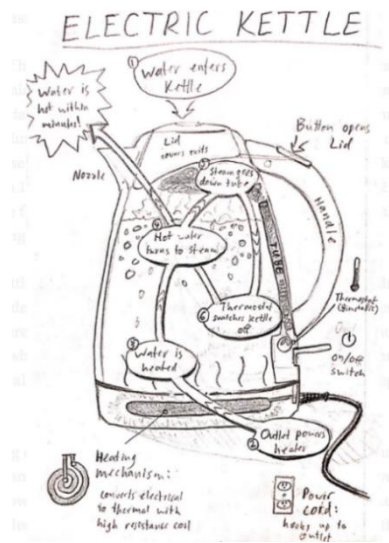 ELECTRIC KETTLE
①
Water enters
Kettle
Water is
hot within
minutes!
Lid
covers exits
Button opens
Lid
Nozzle
⑤
Steam goes
down tube
Handle
④
Hot water
turns to steam
TUBE
⑥
Thermostat
switches kettle
off
Thermostat
(Bimetallic)
on/off
switch
③
Water is
heated
②
Outlet powers
heater
Heating
mechanism:
converts electrical
to thermal with
high resistance coil
Power
cord:
hooks up to
outlet